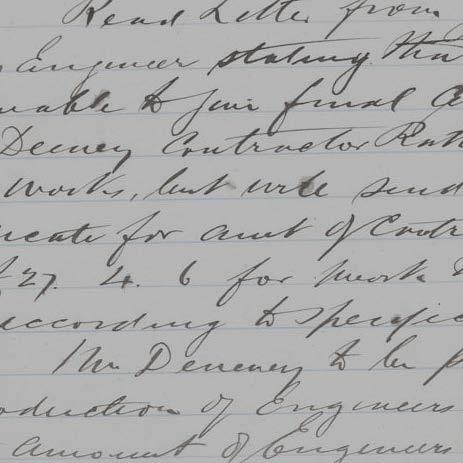 Read Letter from
Engineer stating tha
unable to give final C
Deeney Contractor Rath
works, but will send
icate for amt of Contr
£27. 4. 6 for work
according to specific
Mr Deneney to be p
oduction of Engineers
amount of Engineers